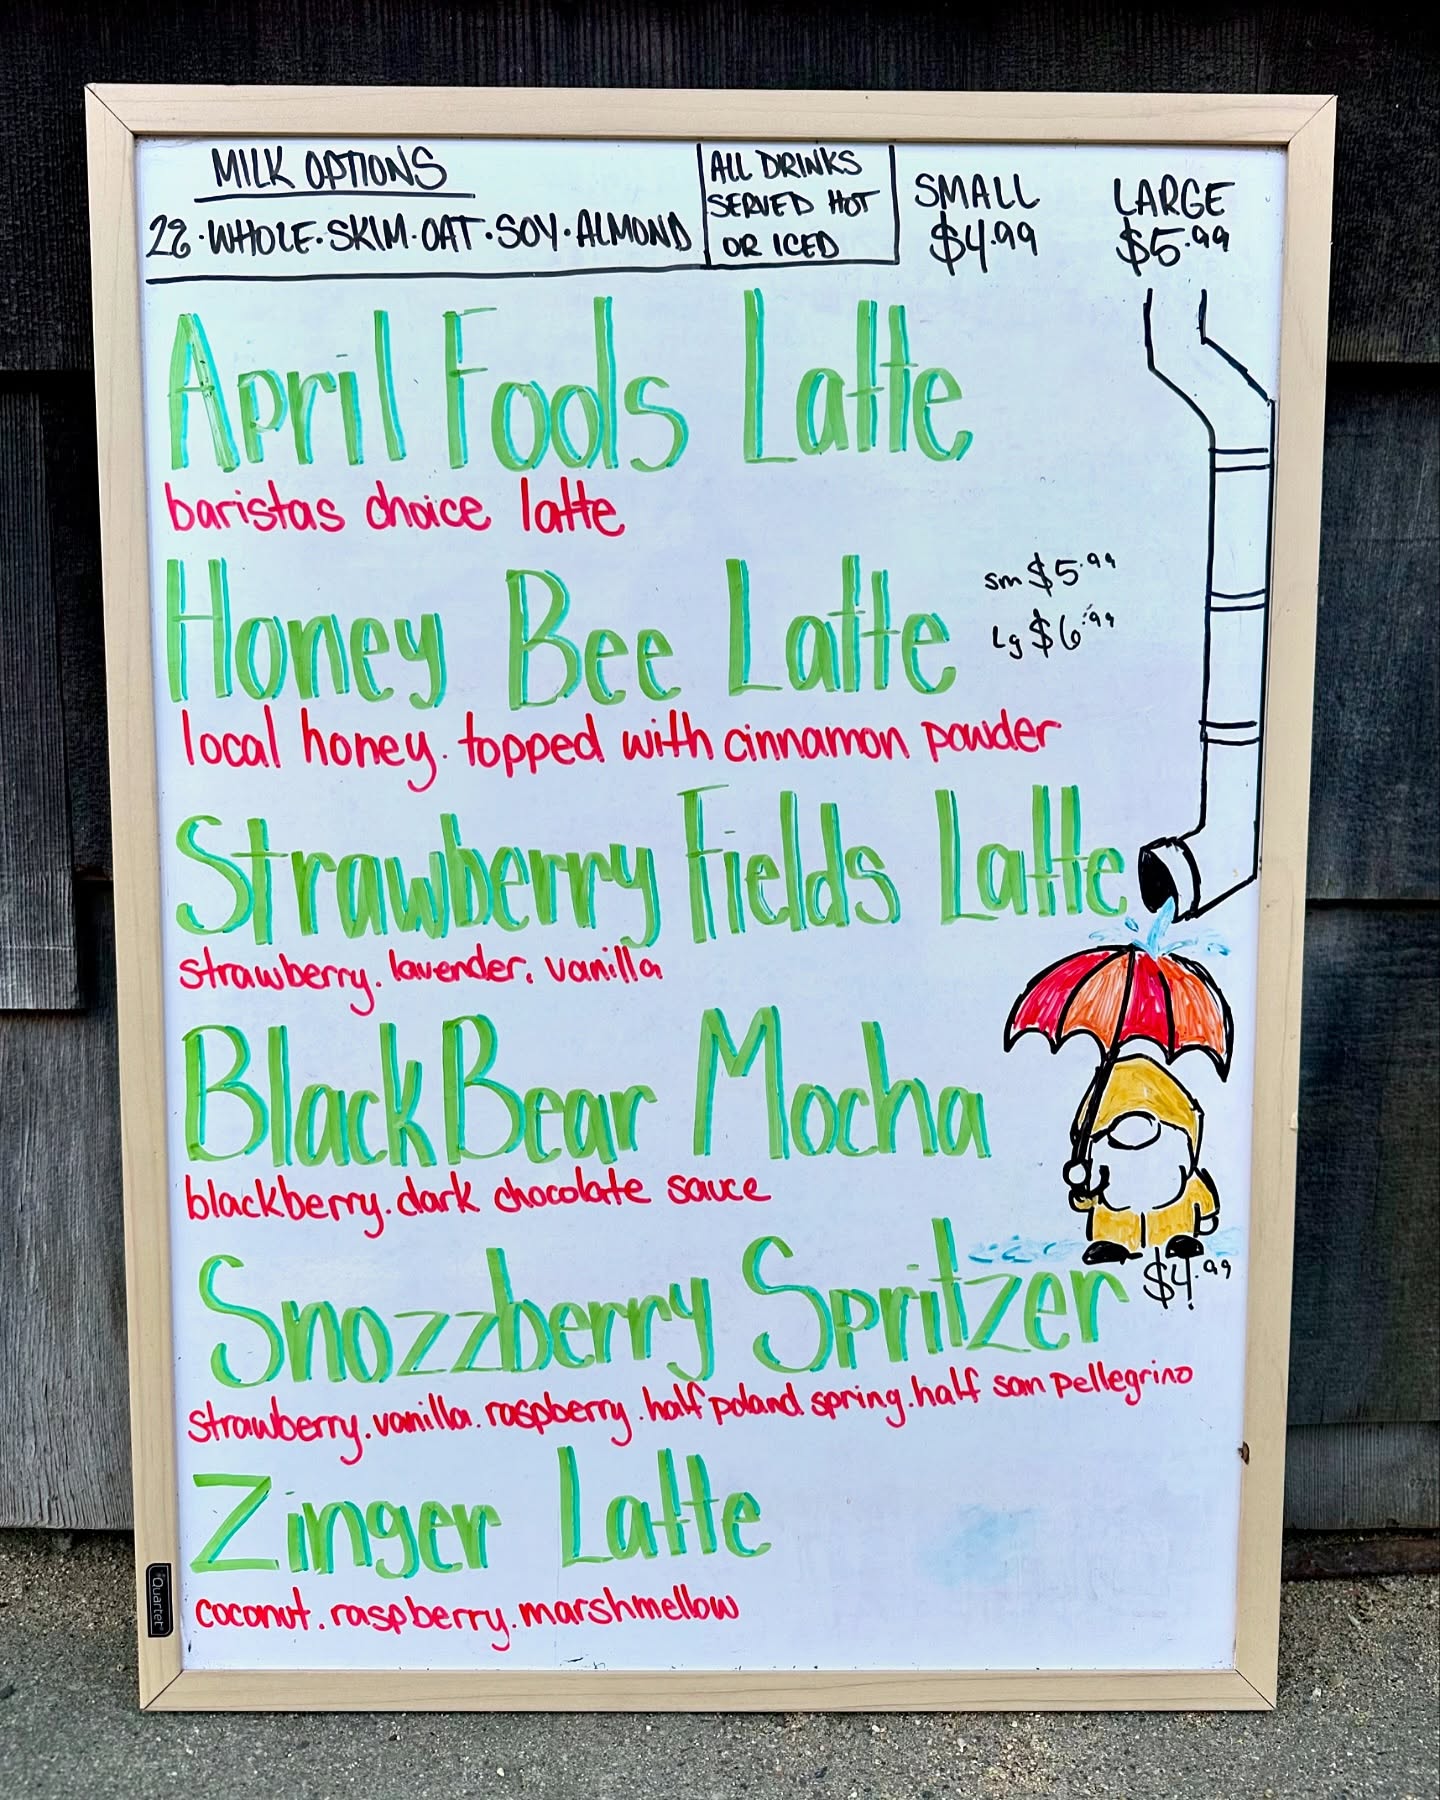 MILK OPTIONS
2%·WHOLE·SKIM·OAT·SOY·ALMOND
ALL DRINKS
SERVED HOT
OR ICED
SMALL
$4.99
LARGE
$5.99
April Fools Latte
baristas choice latte
Honey Bee Latte
sm $5.99
Lg $6.99
local honey. topped with cinnamon powder
Strawberry Fields Latte
strawberry. lavender. vanilla
BlackBear Mocha
blackberry. dark chocolate sauce
Snozzberry Spritzer $4.99
strawberry. vanilla. raspberry. half poland spring. half san pellegrino
Zinger Latte
coconut. raspberry. marshmellow
Quartet